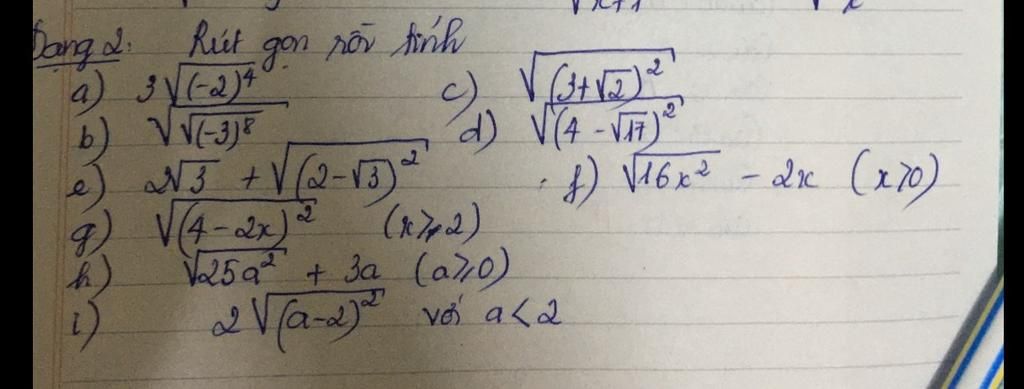 √x+1 √x
Dạng 2: Rút gọn rồi tính
a) 3√(-2)⁴ c) √(3+√2)²
b) √√(-3)⁸ d) √(4-√17)²
e) 2√3 + √(2-√3)² f) √16x² - 2x (x≥0)
g) √(4-2x)² (x≥2)
h) √25a² + 3a (a≥0)
i) 2√(a-2)² với a<2